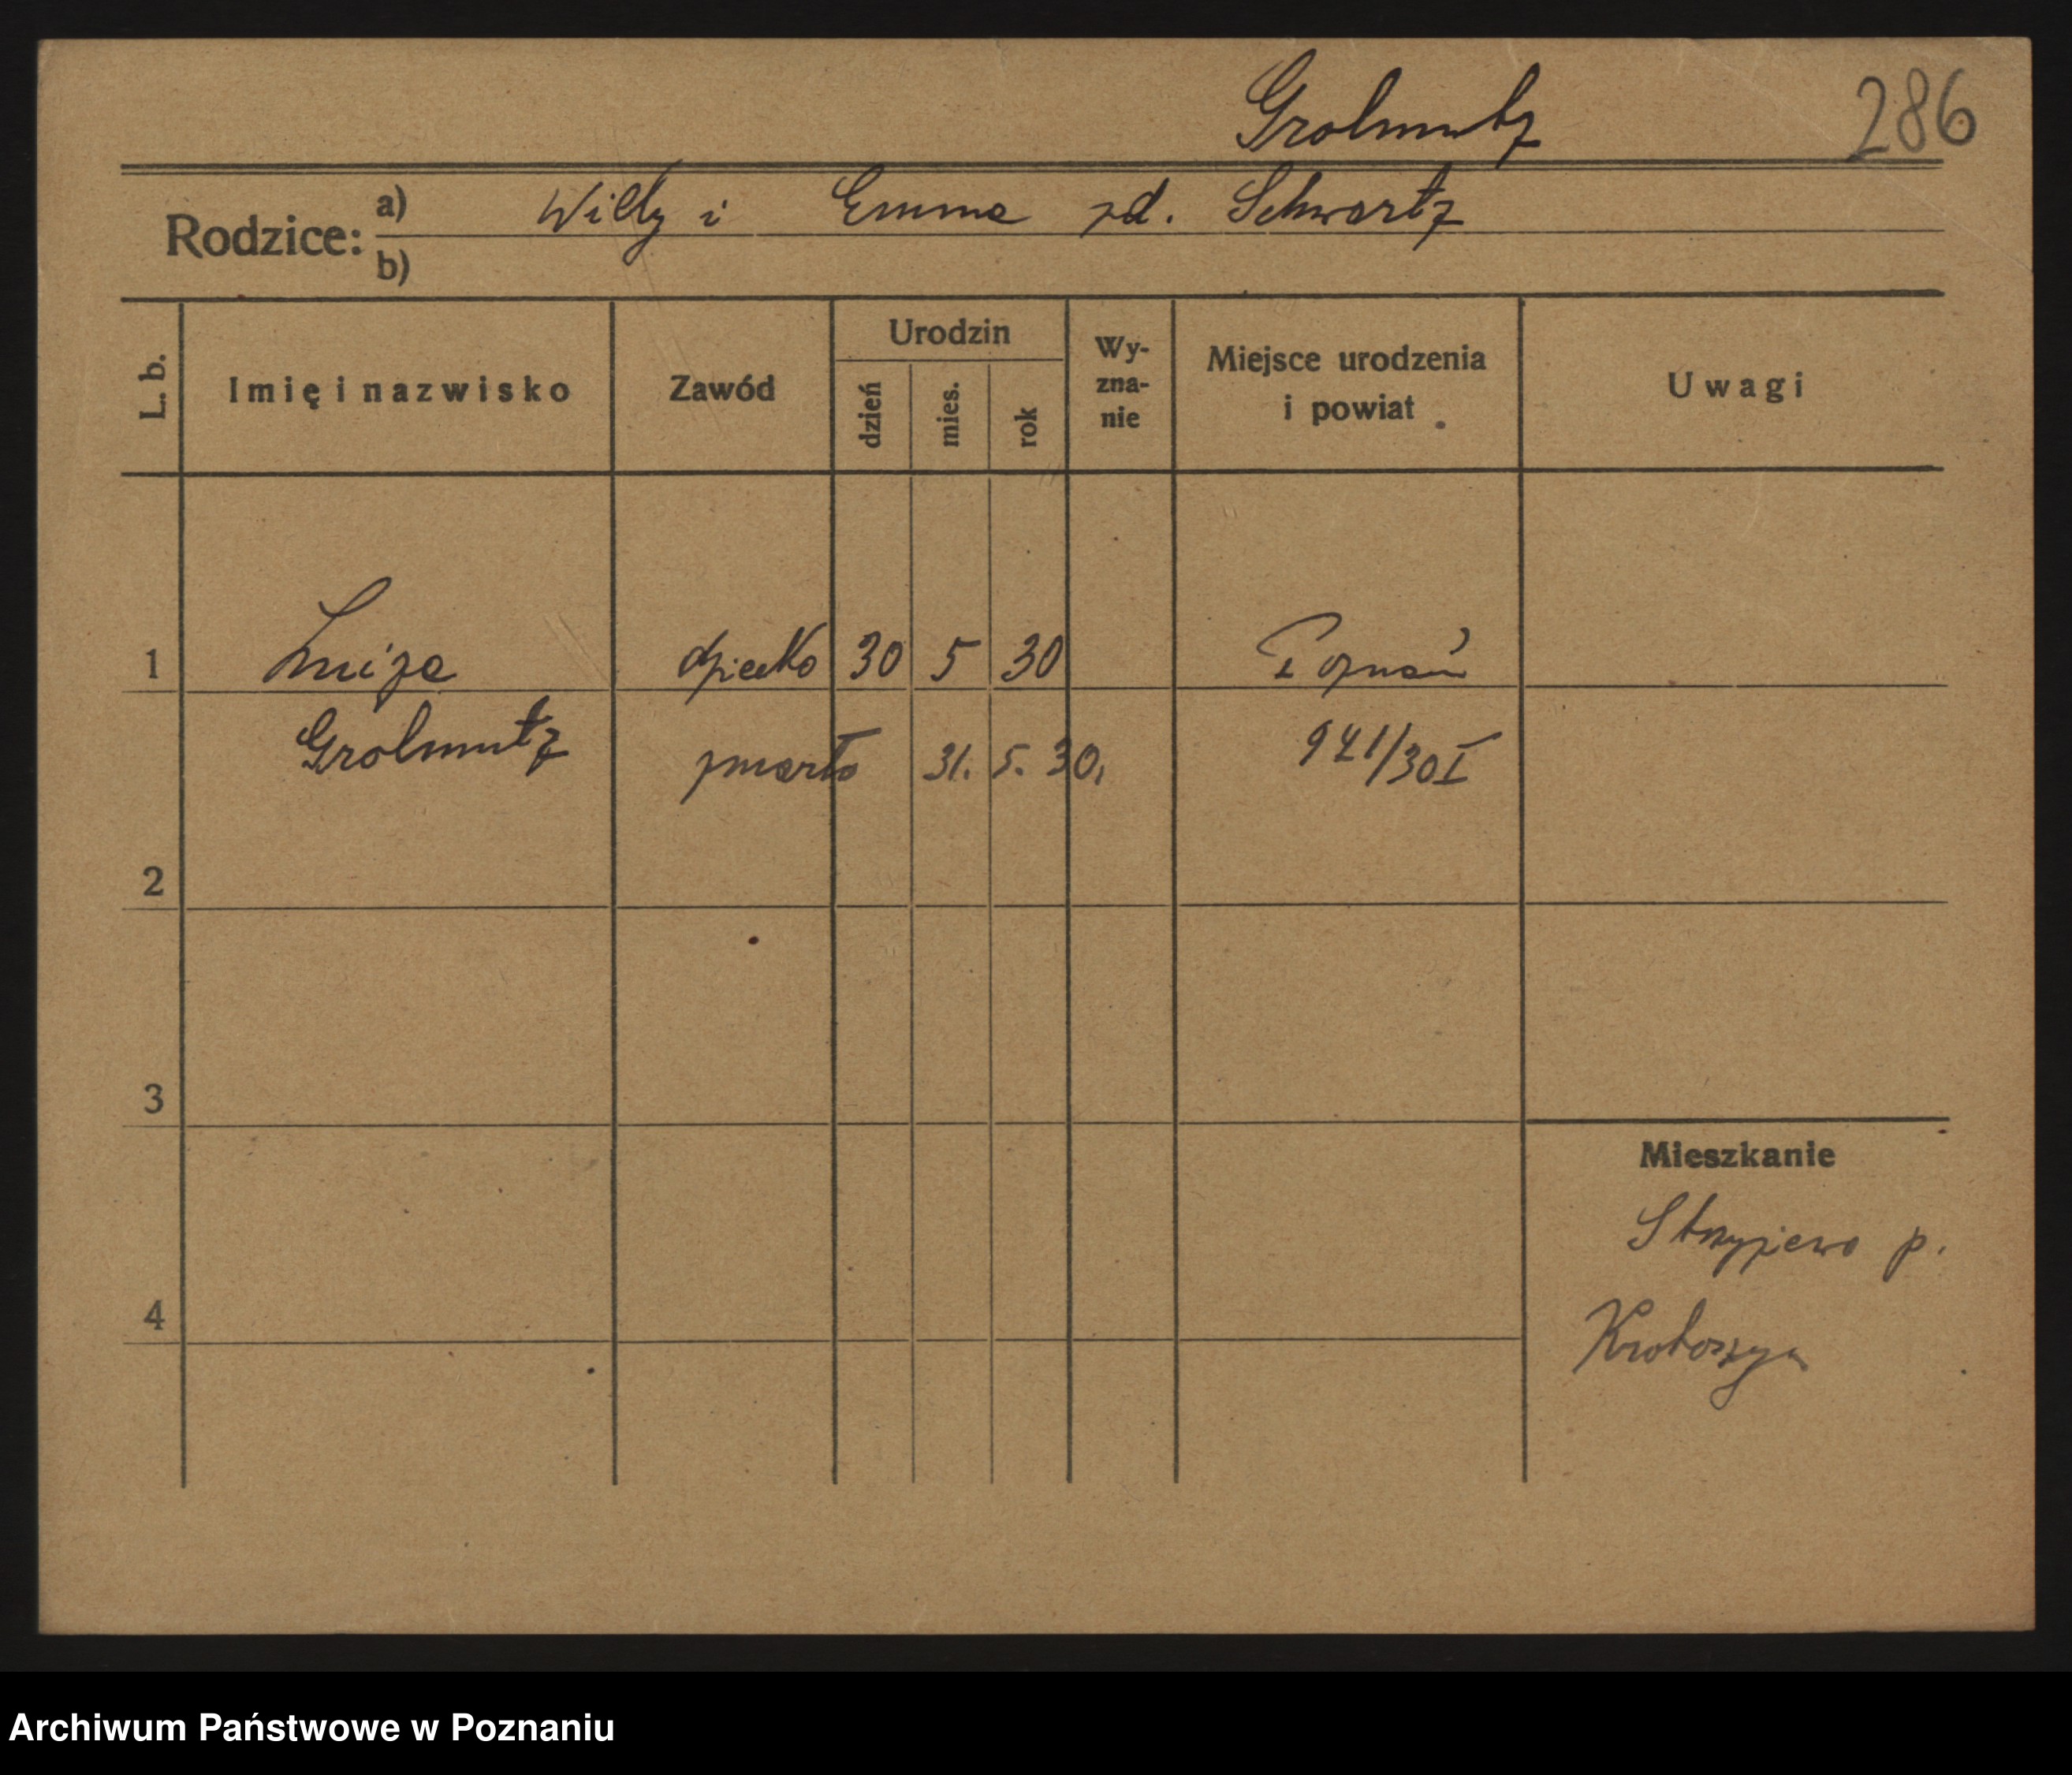 Grolmutz 286
Rodzice: a) Willy i Emma zd. Schwartz
b)
L. b. Imię i nazwisko Zawód Urodzin dzień mies. rok Wy-zna-nie Miejsce urodzenia i powiat Uwagi
1 Luiza dziecko 30 5 30 Poznań
Grolmutz zmarło 31. 5. 30. 921/30 I
2
3
Mieszkanie
p.
4 Krotoszyn
Archiwum Państwowe w Poznaniu